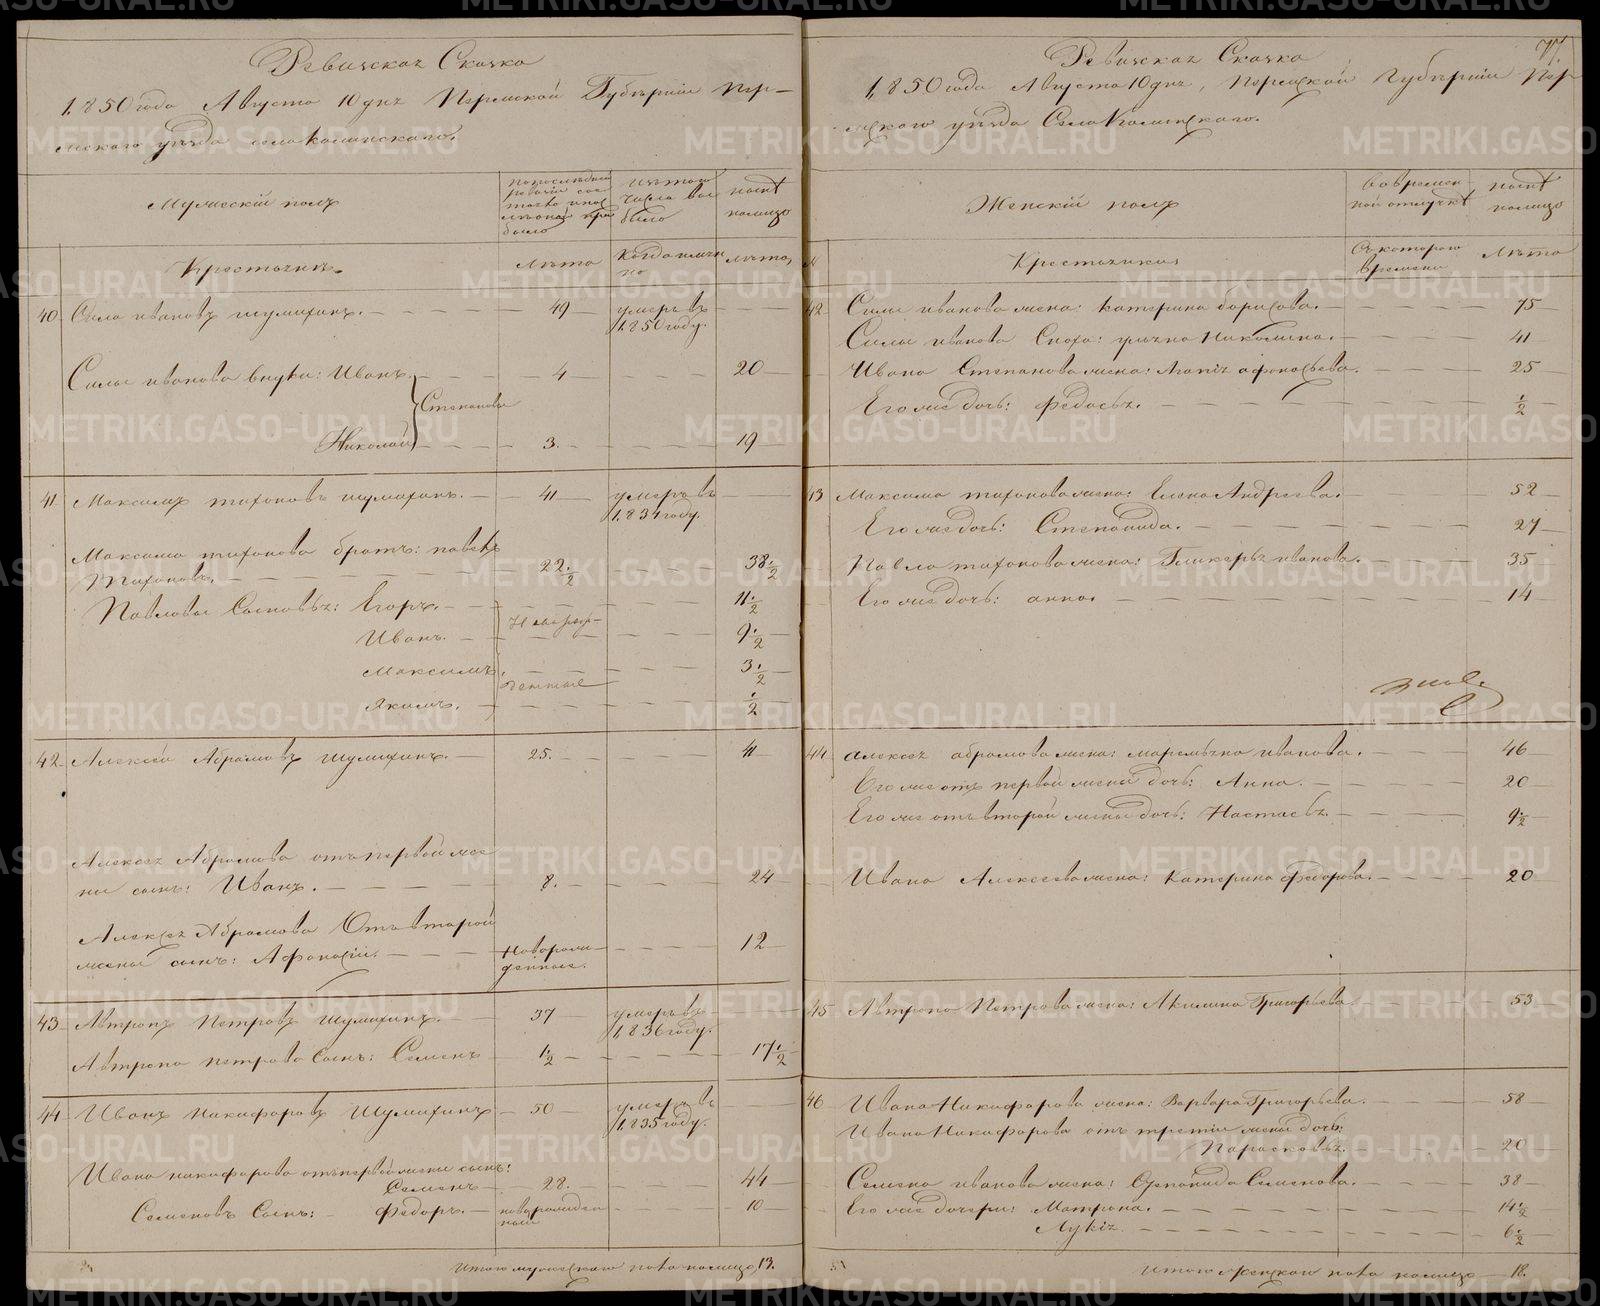 Ревизская Сказка
1850 года Августа 10 дня Пермской Губернии Пер-
мскаго уезда села
Мужескій полъ
По последней ревизіи состояло и после оной прибыло
Изъ того числа выбыло
ныне на лицо
Крестьянъ
Лета
Когда именно
Лета
40 Сила Ивановъ Шумихинъ. 49 умеръ въ 1850 году.
Силы Иванова внуки: Иванъ 4 20
Степановы
Николай 3. 19
41 Максимъ Тихоновъ Шумихинъ. 41 умеръ въ 1834 году.
Максима Тихонова братъ: Павелъ
Тихоновъ. 22 1/2 38 1/2
Павловы Сыновья: Егоръ. 11 1/2
Иванъ. 9 1/2
Максимъ. 3 1/2
Якимъ. 1/2
Новорожденные
42 Алексей Абрамовъ Шумихинъ. 25. 41
Алексея Абрамова отъ первой же-
ны сынъ: Иванъ. 8. 24
Алексея Абрамова Отъ второй
жены сынъ: Афонасій. Новорожденные. 12
43 Автропъ Петровъ Шумихинъ. 37 умеръ въ 1836 году.
Автропа Петрова Сынъ: Семенъ 1 1/2 17 1/2
44 Иванъ Никифоровъ Шумихинъ 50 умеръ въ 1835 году.
Ивана Никифорова отъ первой жены сынъ:
Семенъ 28. 44
Семеновъ Сынъ: Федоръ. новорожденной 10
Итого мужескаго пола на лицо 13.
77
Ревизская Сказка
1850 года Августа 10 дня, Пермской Губерніи Пер
мскаго уезда Села
Женскій полъ
Во временной отлучке
ныне на лицо
№
Крестьянки
Съ котораго времени
Лета
42 Силы Иванова жена: Катерина Борисова. 75
Силы Иванова Сноха: 41
Ивана Степанова жена: Афонасьева. 25
Его же дочь: Федосья. 1/2
43 Максима Тихонова жена: Елена Андреева. 52
Его же дочь: Степанида. 27
Павла Тихонова жена: Гликерья Иванова. 35
Его же дочь: Анна. 14
44 Алексея Абрамова жена: Маремьяна Иванова. 46
Его же отъ первой жены дочь: Анна. 20
Его же отъ второй жены дочь: Настасья. 9 1/2
Ивана Алексеева жена: Катерина Федорова. 20
45 Автропа Петрова жена: Акилина Григорьева 53
46 Ивана Никифорова жена: Варвара Григорьева. 58
Ивана Никифорова отъ третіи жены дочь:
Парасковья. 20
Семена Иванова жена: Степанида Семенова. 38
Его же дочери: Матрона. 14 1/2
Лукія 6 1/2
Итого женскаго пола на лицо 18.
METRIKI.GASO-URAL.RU